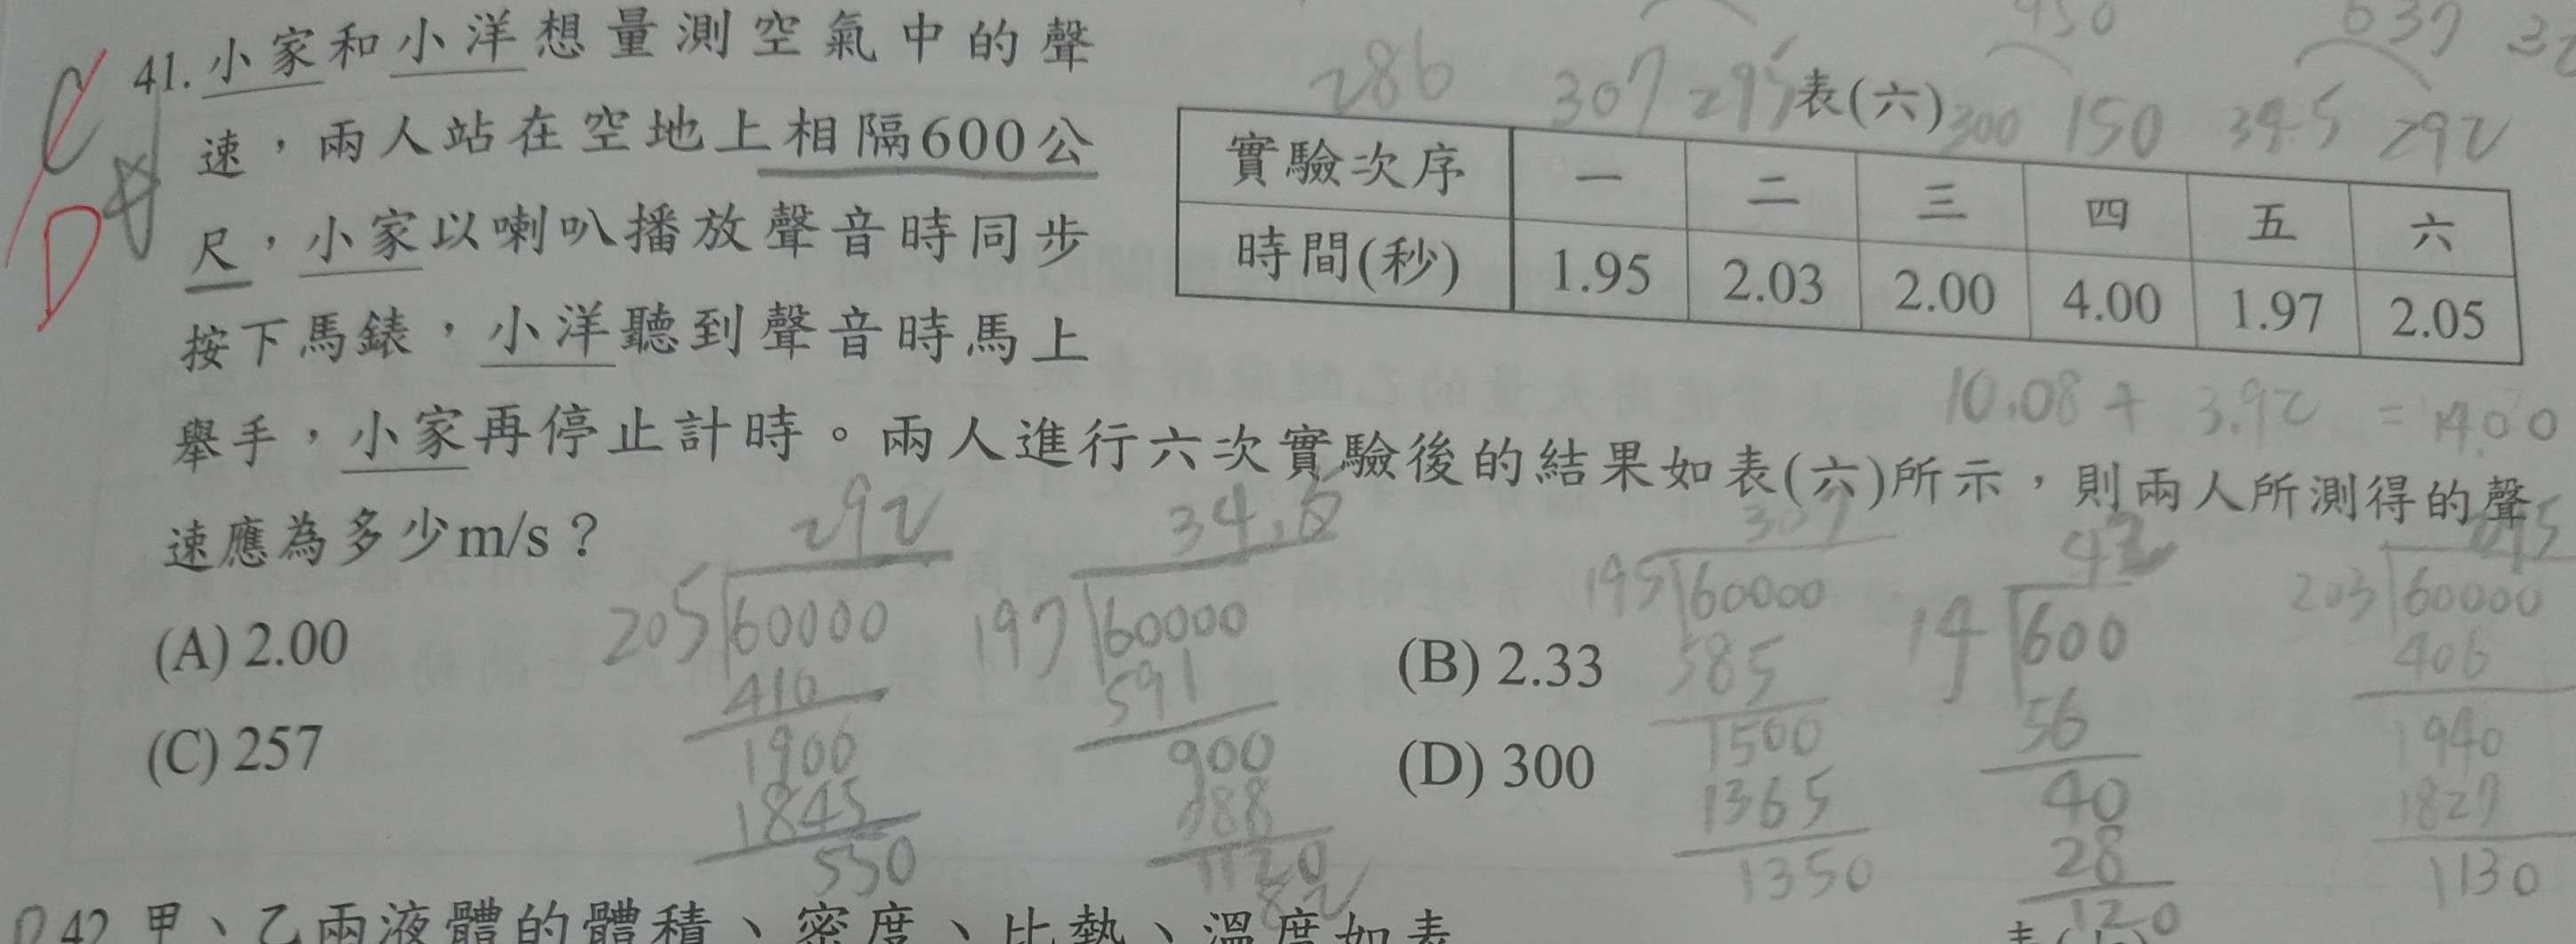 41. 小家和小洋想量測空氣中的聲
速，兩人站在空地上相隔600公
尺，小家以喇叭播放聲音時同步
按下馬錶，小洋聽到聲音時馬上
舉手，小家再停止計時。兩人進行六次實驗後的結果如表(六)所示，則兩人所測得的聲
速應為多少m/s？
286 307 295 表(六) 300 150 34.5 292
實驗次序 一 二 三 四 五 六
時間(秒) 1.95 2.03 2.00 4.00 1.97 2.05
10.08 + 3.92 = 14.00
(A) 2.00
(B) 2.33
(C) 257
(D) 300
C
D
292
205 60000
410
1900
1845
550
197 60000
591
900
1120
307
195 60000
585
1500
1365
1350
14 600
56
40
28
120
203 60000
406
1940
1827
1130
42 甲、乙兩液體的體積、密度、比熱、溫度如表